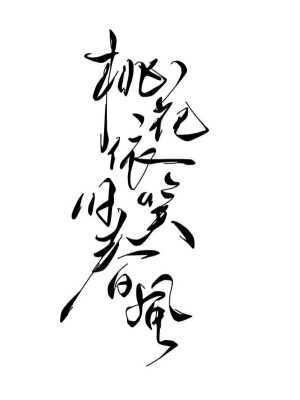 桃花依旧笑春風